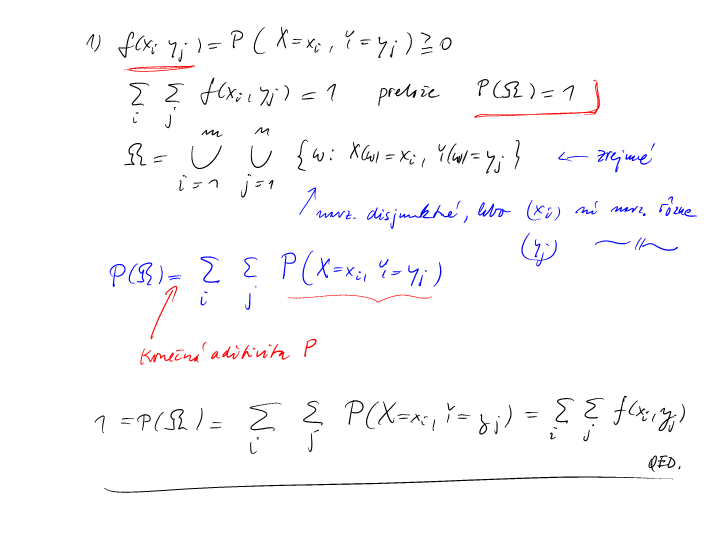 1) f(xᵢ yⱼ) = P ( X=xᵢ , Y=yⱼ ) ≧ 0
∑ᵢ ∑ⱼ f(xᵢ, yⱼ) = 1 pretože P(Ω) = 1
Ω = ⋃ᵢ₌₁ᵐ ⋃ⱼ₌₁ⁿ { ω: X(ω)=xᵢ, Y(ω)=yⱼ } ← zrejmé
navz. disjunktné, lebo (xᵢ) sú navz. rôzne
(yⱼ) —〃—
P(Ω) = ∑ᵢ ∑ⱼ P(X=xᵢ, Y=yⱼ)
Konečná aditivita P
1 = P(Ω) = ∑ᵢ ∑ⱼ P(X=xᵢ, Y=yⱼ) = ∑ᵢ ∑ⱼ f(xᵢ, yⱼ)
QED.